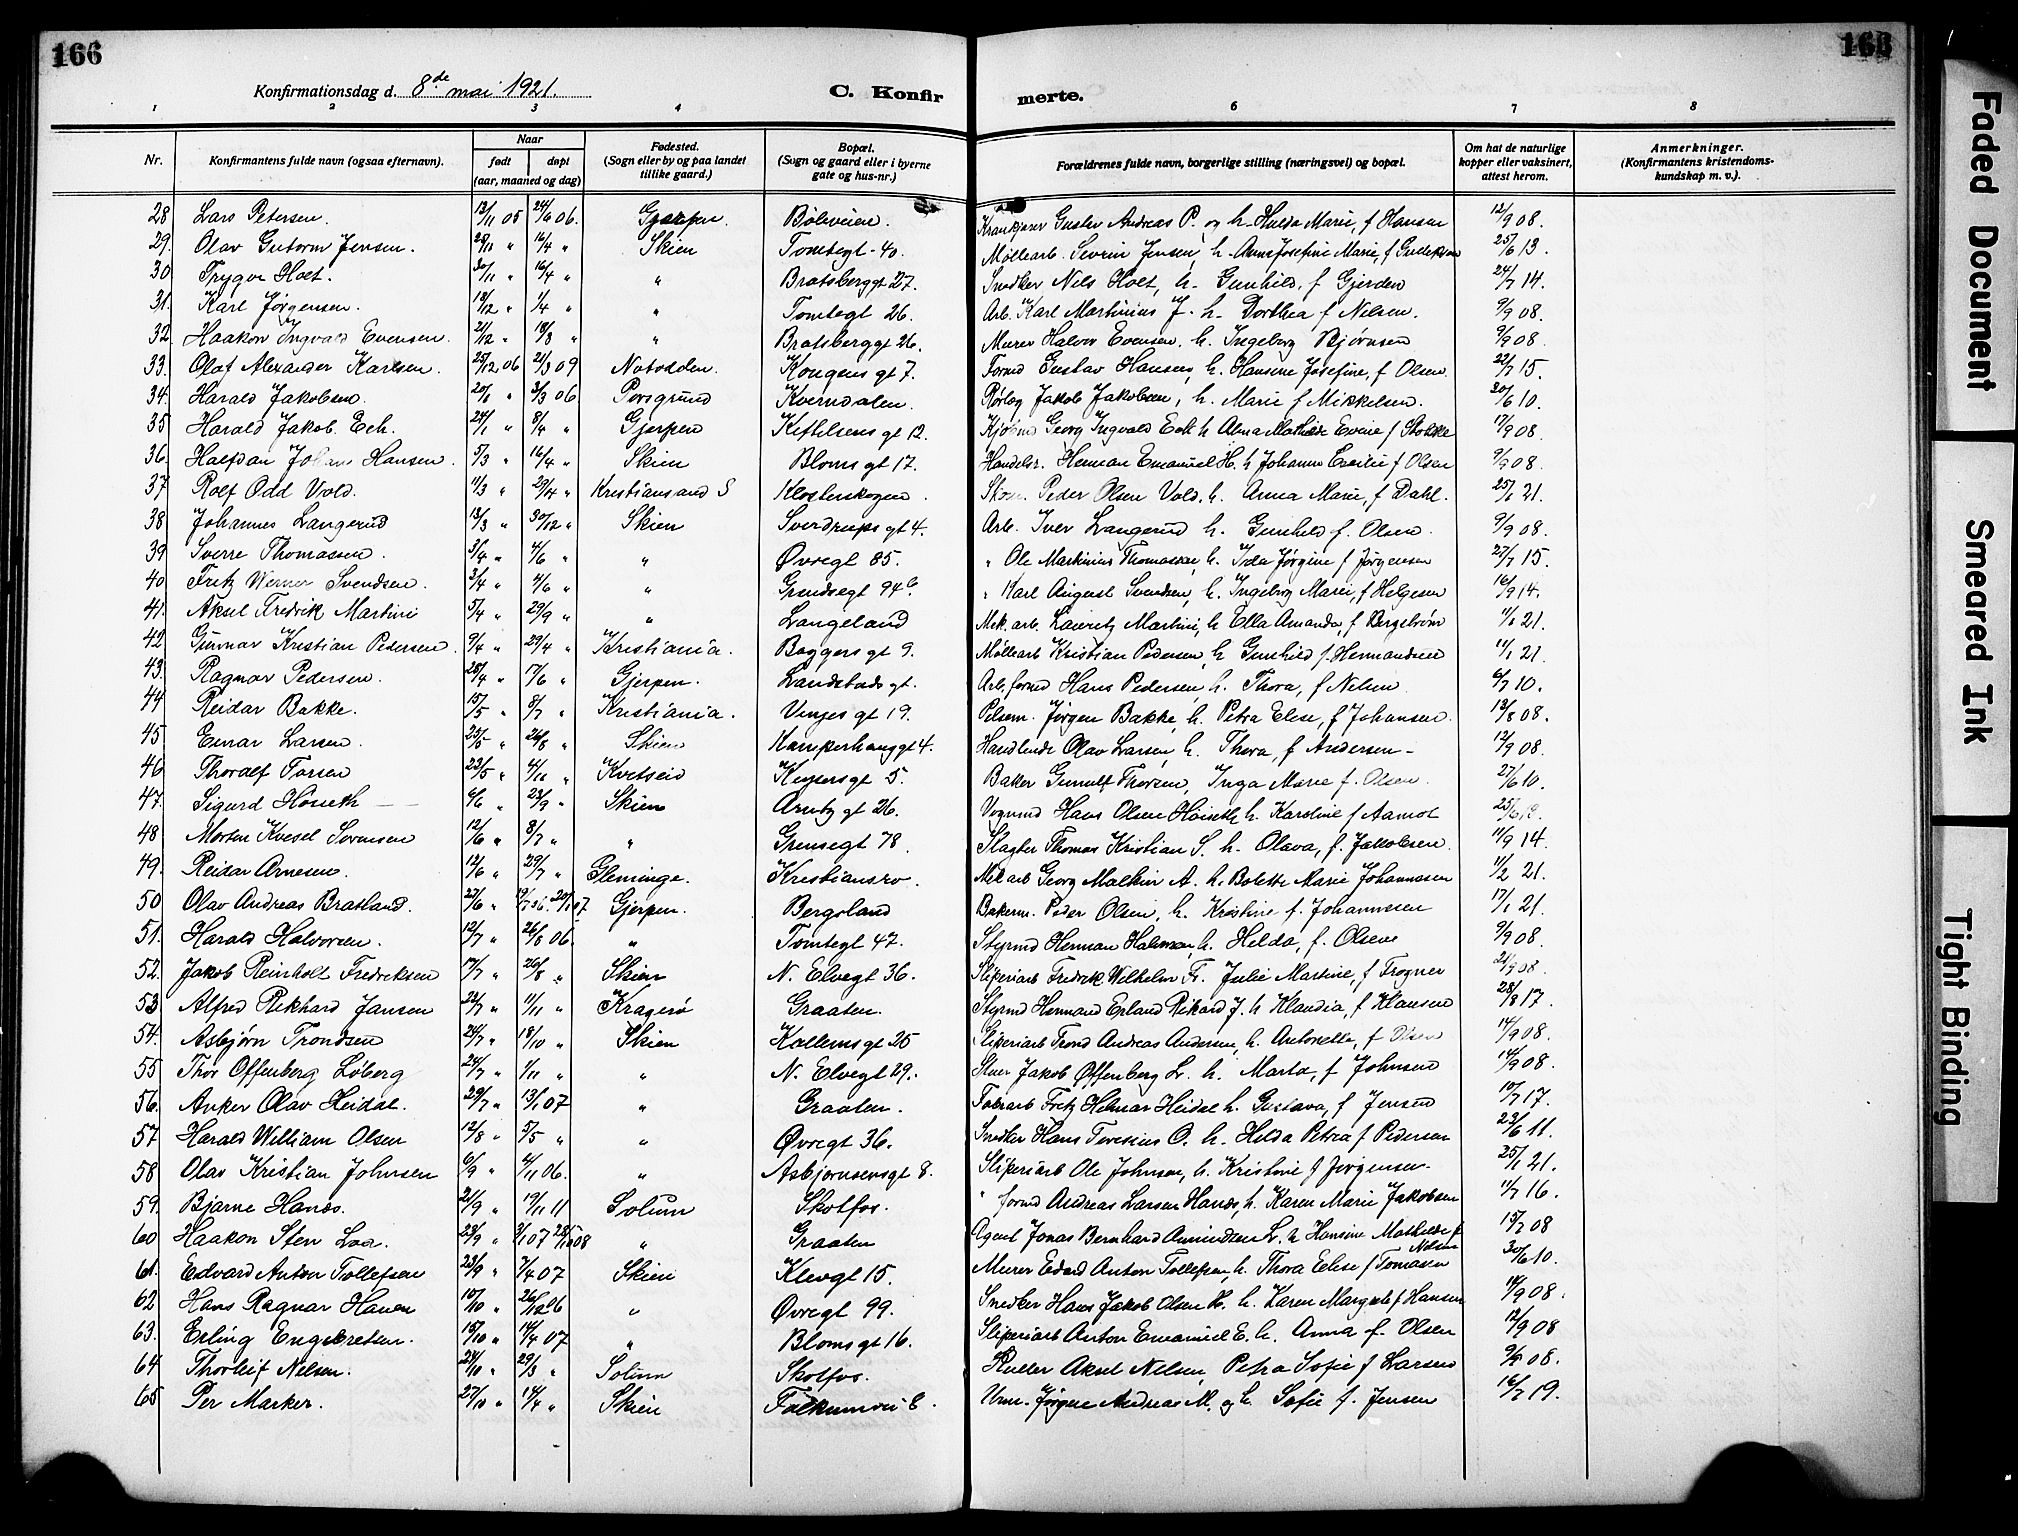 166
Konfirmationsdag d. 8de mai 1921.
C. Konfir
merte.
166
1 2 3 4 6 7 8
Nr. Konfirmantens fulde navn (ogsaa efternavn). Naar født døpt (aar, maaned og dag) Fødested. (Sogn eller by og paa landet tillike gaard.) Bopæl. (Sogn og gaard eller i byerne gate og hus-nr.) Forældrenes fulde navn, borgerlige stilling (næringsvei) og bopæl. Om hat de naturlige kopper eller vaksinert, attest herom. Anmerkninger. (Konfirmantens kristendomskundskap m. v.).
28 Lars Petersen. 12/11 05 24/6 06. Gjerpen. Bøleveien. Krankjører Gustav Andreas P. og h. Hulda Marie, f Hansen 12/9 08.
29. Olav Gutorm Jensen. " 16/4 " Skien Tomtegt. 40. Møllearb. Severin Jensen, h. Anne Josefine Marie, f 25/6 13.
30 Trygve Holt. 30/11 " 16/4 " " Bratsberggt 27. Snedker Nils Holt, h. Gunhild, f Gjerden 24/7 14.
31. Karl Jørgensen. 18/12 " 1/4 " " Tomtegt 26. Arb. Karl Martinius J. h. Dorthea f Nilsen. 9/9 08.
32. Haakon Ingvald Evensen. 21/12 " 18/3 " " Bratsberggt 26. Murer Halvor Evensen, h. Ingeborg Bjørnsen 9/9 08.
33. Olaf Alexander Karlsen. 25/12 06 21/3 09 Notodden. Kongens gt 7. Formd Gustav Hansen, h. Hansine Josefine, f Olsen. 22/7 15.
34. Harald Jakobsen. 20/1 " 3/3 06 Porsgrund Kverndalen. Rørlæg Jakob Jakobsen, h. Marie f Mikkelsen. 20/6 10.
35 Harald Jakob Eek. 24/1 " 8/4 " Gjerpen Kittilsens gt 12. Kjøbmd Georg Ingvald Eek h Alma Mathilde f Stokke 17/9 08.
36. Halfdan Johan Hansen. 5/3 " 16/4 " Skien Bloms gt 17. Handelsr. Herman Emanuel H. h Johanne Cecilie f Olsen 9/9 08.
37 Rolf Odd Vold. 11/3 " 29/4 " Kristiansand S Klosterskogen. Peder Olsen Vold, h. Anna Marie, f Dahl. 25/1 21.
38 Johannes Langerud 13/3 " 30/12 " Skien Sverdrups gt 4. Arb. Iver Langerud h. Gunhild f. Olsen. 9/9 08.
39 Sverre Thomassen. 3/4 " 4/6 " " Øvregt 85. " Ole Martinius Thomassen, h. Ida Jørgine f Jørgensen 27/7 15.
40. Fritz Werner Svendsen. 3/4 " 4/6 " " Grensegt 94 b. " Karl August Svendsen, h. Ingeborg Marie, f Helgesen 16/9 14.
41. Aksel Fredrik Martini 5/4 " 29/9 " " Langeland Mek. arb. Martini, h Ella Amanda, f Bergstrøm 11/1 21.
42 Gunnar Kristian Pedersen. 9/4 " 29/4 " Kristiania. Baggers gt 9. Møllearb Kristian Pedersen, h Gunhild f. Hermandsen 11/1 21.
43. Ragnar Pedersen. 28/4 " 17/6 " Gjerpen. Landstads gt. Arb. formd Hans Pedersen, h. Thora, f Nilsen 6/7 10.
44 Reidar Bakke. 15/5 " 8/7 " Kristiania. Venjes gt 19. Pølsem. Jørgen Bakke, h. Petra Elise, f Johansen. 13/8 08.
45 Einar Larsen. 23/5 " 26/8 " Skien Kamperhauggt 4. Handlende Olav Larsen, h. Thora, f Andersen - 12/9 08.
46 Thoralf Torsen 23/5 " 4/11 " Kvitseid Keysersgt 5. Baker Gunnulf Thorsen, Inga Marie f. Olsen. 27/6 10.
47. Sigurd Høiseth 6/6 " 23/9 " Skien Arntz gt 26. Vognmd Hans Olsen Høiseth h Karoline f Aamot
48 Morten Kvesel Sørensen 12/6 " 8/7 " " Grensegt 78 Slagter Thomas Kristian S. h. Olava, f. Jakobsen. 11/9 14.
49. Reidar Arnesen. 12/6 " 29/7 " Glemminge. Kristiansro. Mek arb Georg A. h. Bolette Marie Johannessen 11/2 21.
50 Olav Andreas Bratland. 27/6 " Gjerpen. Bergsland Bakerm. Peder Olsen, h. Kristine f. Johannesen 17/1 21.
51. Harald Halvorsen. 12/7 " 26/8 06. " Tomtegt 47. Styrmd Herman Halvorsen, h. Helda, f. Olsen 9/9 08.
52. Jakob Reinholt Fredriksen 17/7 " 26/8 " Skien N. Elvegt 36. Sliperiarb Fredrik Wilhelm Fr. Julie Martine, f Frogner 21/9 08.
53 Alfred Rikhard Jansen 23/7 " 11/11 " Kragerø Graaten. Styrmd Hermand Rikard J. h Klandia, f Klausen 28/8 17.
54. Asbjørn Trondsen 24/7 " 18/10 " Skien Kollemsgt 25 Sliperiarb Trond Andreas Andersen, h. Antonette, f Olsen 14/9 08.
55 Thor Offenberg Løberg 24/7 " 1/11 " " N. Elvegt 29. Stuer Jakob Offenberg L. h. Marta, f Johnsen 14/9 08.
56. Anker Olav Heidal. 29/7 " 13/1 07 " Graaten. Fabrarb Fritz Helmar Heidal h. Gustava, f Jensen 10/7 17.
57 Harald William Olsen 12/8 " 5/5 " " Øvregt 36. Snedker Hans Teresius O. h. Hilda Petrea f Pedersen 23/6 11.
58 Olav Kristian Johnsen 6/9 " 4/11 06. " Asbjørnsensgt 8. Sliperiarb Ole Johnsen, h. Kristine f Jørgensen. 25/1 21.
59. Bjarne Hanås. 21/9 " 19/11 11 Solum Skotfos. " formd Andreas Larsen Hanås, h. Karen Marie Jakobsen 11/7 16.
60 Haakon Sten Laa. 23/9 " 3/1 07 " Graaten Agent Jonas Bernhard Amundsen L. h Hansine Mathilde f Nilsen 15/7 08
61. Edvard Anton Tollefsen 23/9 " 7/4 07 Skien Klevgt 15. Murer Edvard Anton Tollefsen, h. Thora Elise f Tomassen 30/6 10.
62 Hans Ragnar Hansen 10/10 " 26/12 06 " Øvregt 99. Snedker Hans Jakob Olsen H. h. Karen Margrete f Hansen 14/9 08.
63. Erling Engebretsen. 15/10 " 14/4 07 " Bloms gt 16. Sliperiarb Anton Emanuel E. h. Anna f. Olsen 12/9 08
64 Thorleif Nilsen. 24/10 " 29/3 " Solum Skotfos. Ruller Aksel Nilsen, Petra Sofie f Larsen 9/8 08.
65 Per Marker. 27/10 " 14/4 " Skien Falkumvei 8. Urm. Jørgen Andreas M. og h. Sofie f. Jensen 16/7 19.
Faded Document
Smeared Ink
Tight Binding